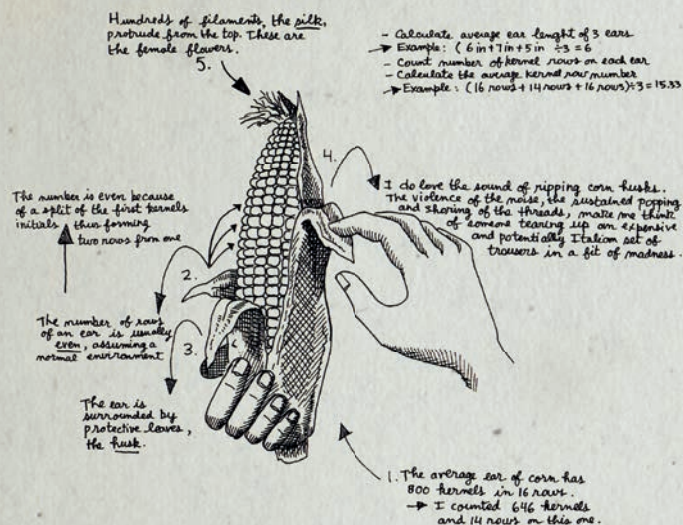 Hundreds of filaments, the silk,
protrude from the top. These are
the female flowers.
5.
- Calculate average ear lenght of 3 ears
→ Example: ( 6 in + 7 in + 5 in ÷ 3 = 6
- Count number of kernel rows on each ear
- Calculate the average kernel row number
→ Example: (16 rows + 14 rows + 16 rows) ÷ 3 = 15.33
4.
I do love the sound of ripping corn husks.
The violence of the noise, the sustained popping
and shoring of the threads, make me think
of someone tearing up an expensive
and potentially Italian set of
trousers in a fit of madness.
The number is even because
of a split of the first kernels
initials thus forming
two rows from one
2.
The number of rows
of an ear is usually
even, assuming a
normal environment
3.
The ear is
surrounded by
protective leaves,
the husk.
1. The average ear of corn has
800 kernels in 16 rows.
→ I counted 646 kernels
and 14 rows on this one.